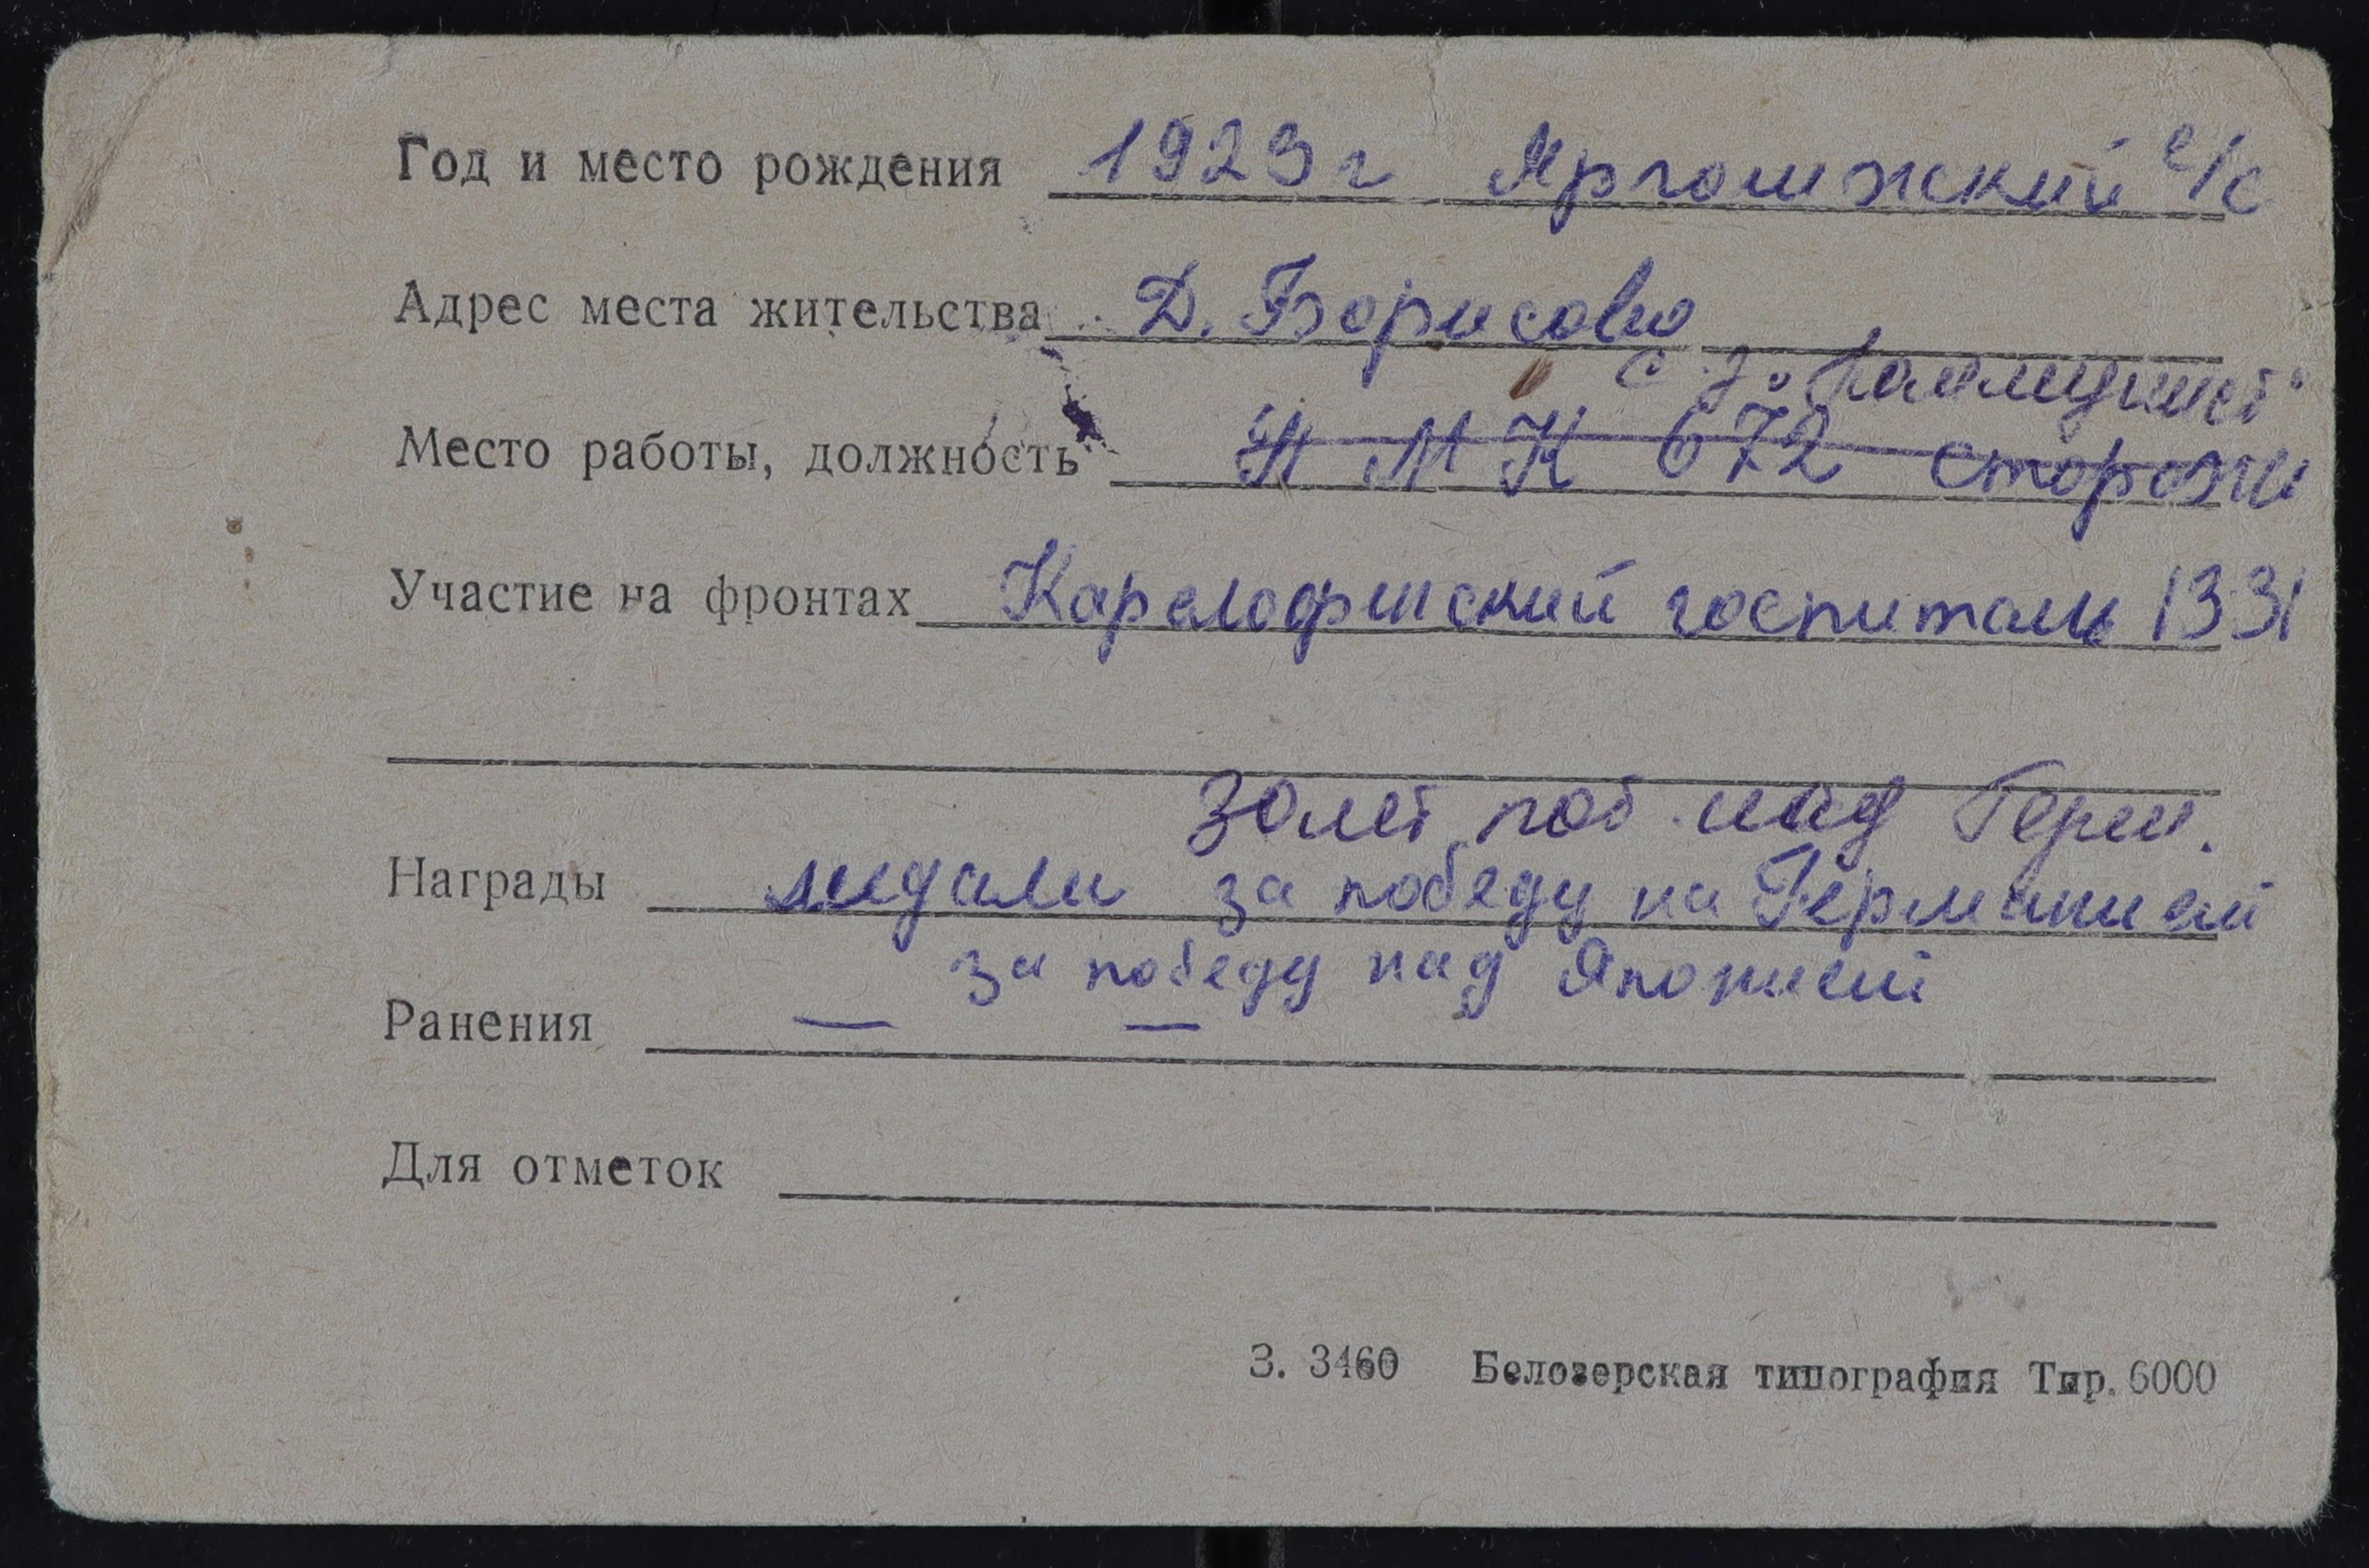 Год и место рождения 1923 г Яргомжский с/с
Адрес места жительства Д. Борисово
с-з
Место работы, должность П М К 672 сторож
Участие на фронтах Карелофинский госпиталь 1331
30 лет поб над Герм.
Награды медали за победу на Германией
за победу над Японией
Ранения — —
Для отметок
З. 3460 Белозерская типография Тир. 6000